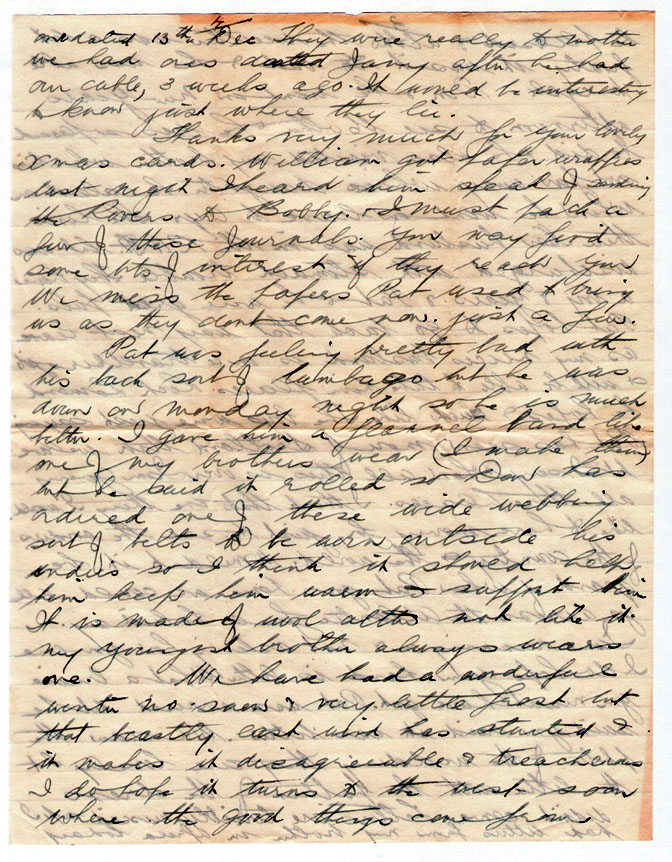 one dated 13th Dec They were really to mother
we had ones dated Jany after he had
our cable, 3 weeks ago. It would be interesting
to know just where they lie.
Thanks very much for your lovely
Xmas cards. William got paper wrapper
last night I heard him speak of sending
the Rovers to Bobby. & I must pack a
few of these Journals. You may find
some bits of interest if they reach you
We miss the papers Pat used to bring
us as they dont come now. just a few.
Pat was feeling pretty bad with
his back sort of lumbago but he was
down on monday night so he is much
better. I gave him a flannel band like
one of my brothers wear (I make them)
but he said it rolled so Dow has
ordered one of these wide webbing
sort of belts to be worn outside his
undies so I think it should help
him keep him warm & support him
It is made of wool altho not like it.
my youngest brother always wears
one. We have had a wonderful
winter no snow & very little frost but
that beastly east wind has started &
it makes it disagreeable & treacherous
I do hope it turns to the west soon
where the good things come from